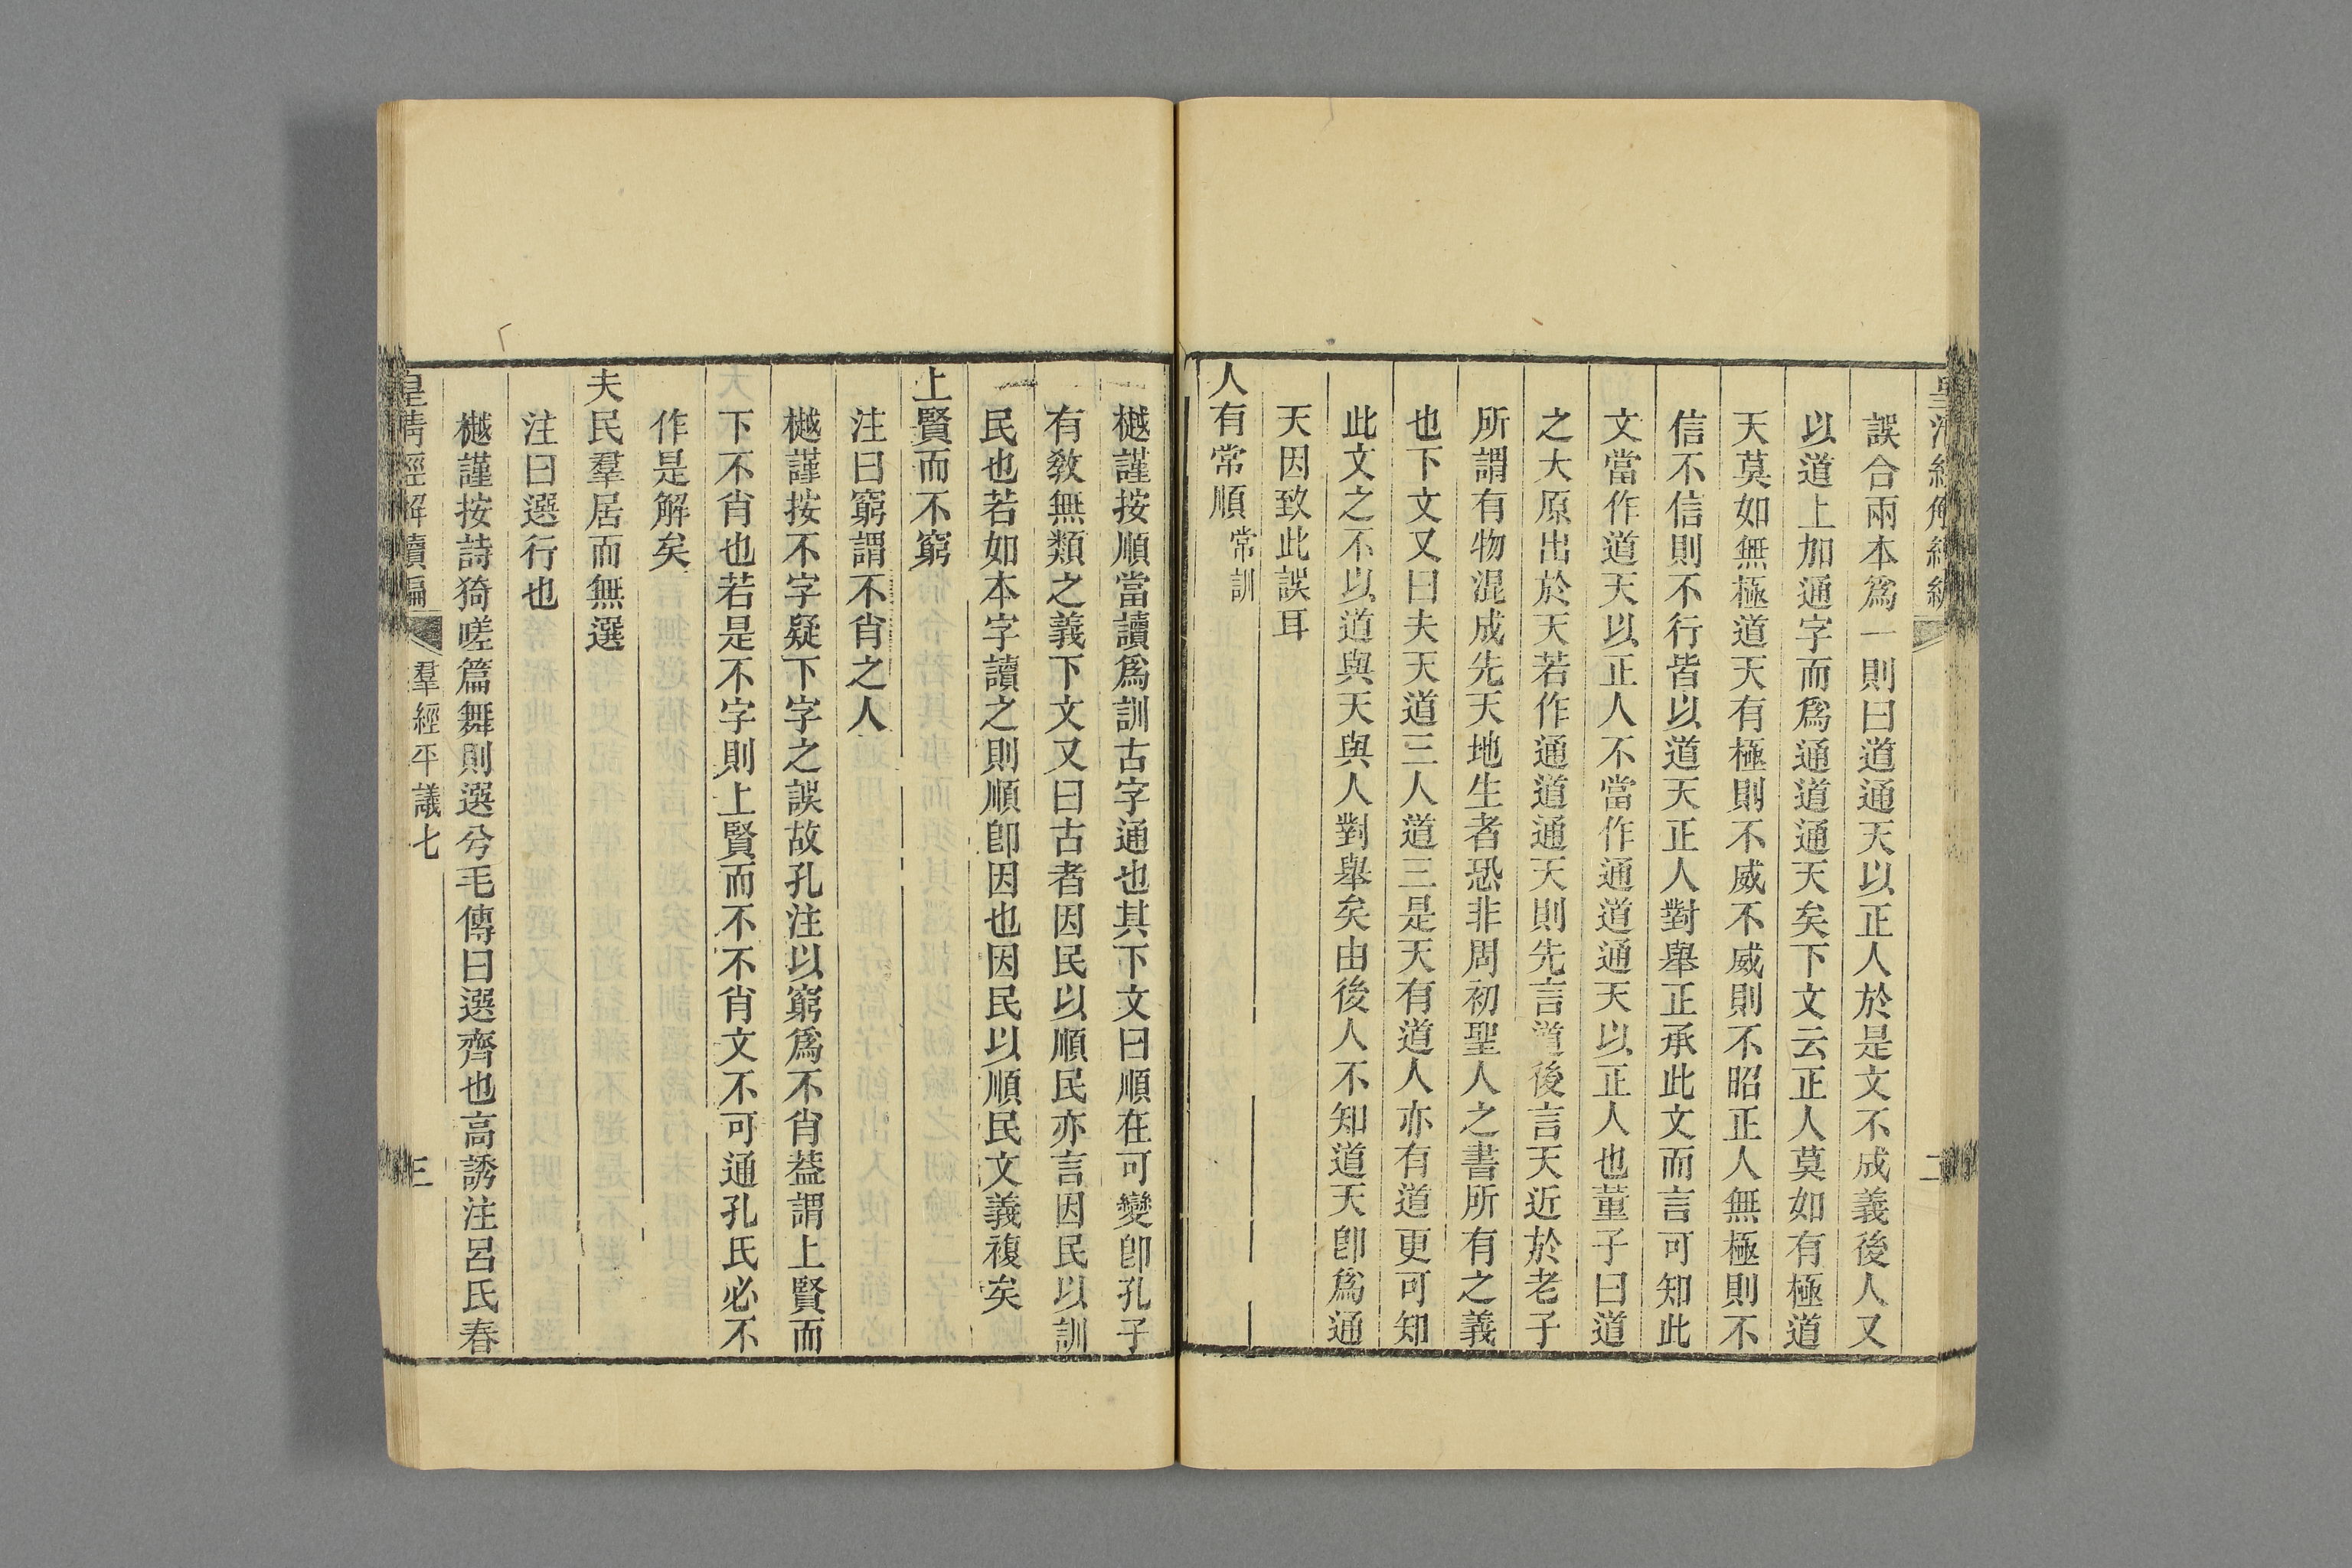 誤合兩本爲一則曰道通天以正人於是文不成義後人又
以道上加通字而爲通道通天矣下文云正人莫如有極道
天莫如無極道天有極則不威不威則不昭正人無極則不
信不信則不行皆以道天正人對舉正承此文而言可知此
文當作道天以正人不當作通道通天以正人也董子曰道
之大原出於天若作通道通天則先言道後言天近於老子
所謂有物混成先天地生者恐非周初聖人之書所有之義
也下文又曰夫天道三人道三是天有道人亦有道更可知
此文之不以道與天與人對舉矣由後人不知道天卽爲通
天因致此誤耳
人有常順常訓
樾謹按順當讀爲訓古字通也其下文曰順在可變卽孔子
有敎無類之義下文又曰古者因民以順民亦言因民以訓
民也若如本字讀之則順卽因也因民以順民文義複矣
上賢而不窮
注曰窮謂不肖之人
樾謹按不字疑下字之誤故孔注以窮爲不肖葢謂上賢而
下不肖也若是不字則上賢而不不肖文不可通孔氏必不
作是解矣
夫民羣居而無選
注曰選行也
樾謹按詩猗嗟篇舞則選兮毛傳曰選齊也高誘注呂氏春
皇清經解續編
羣經平議七
三